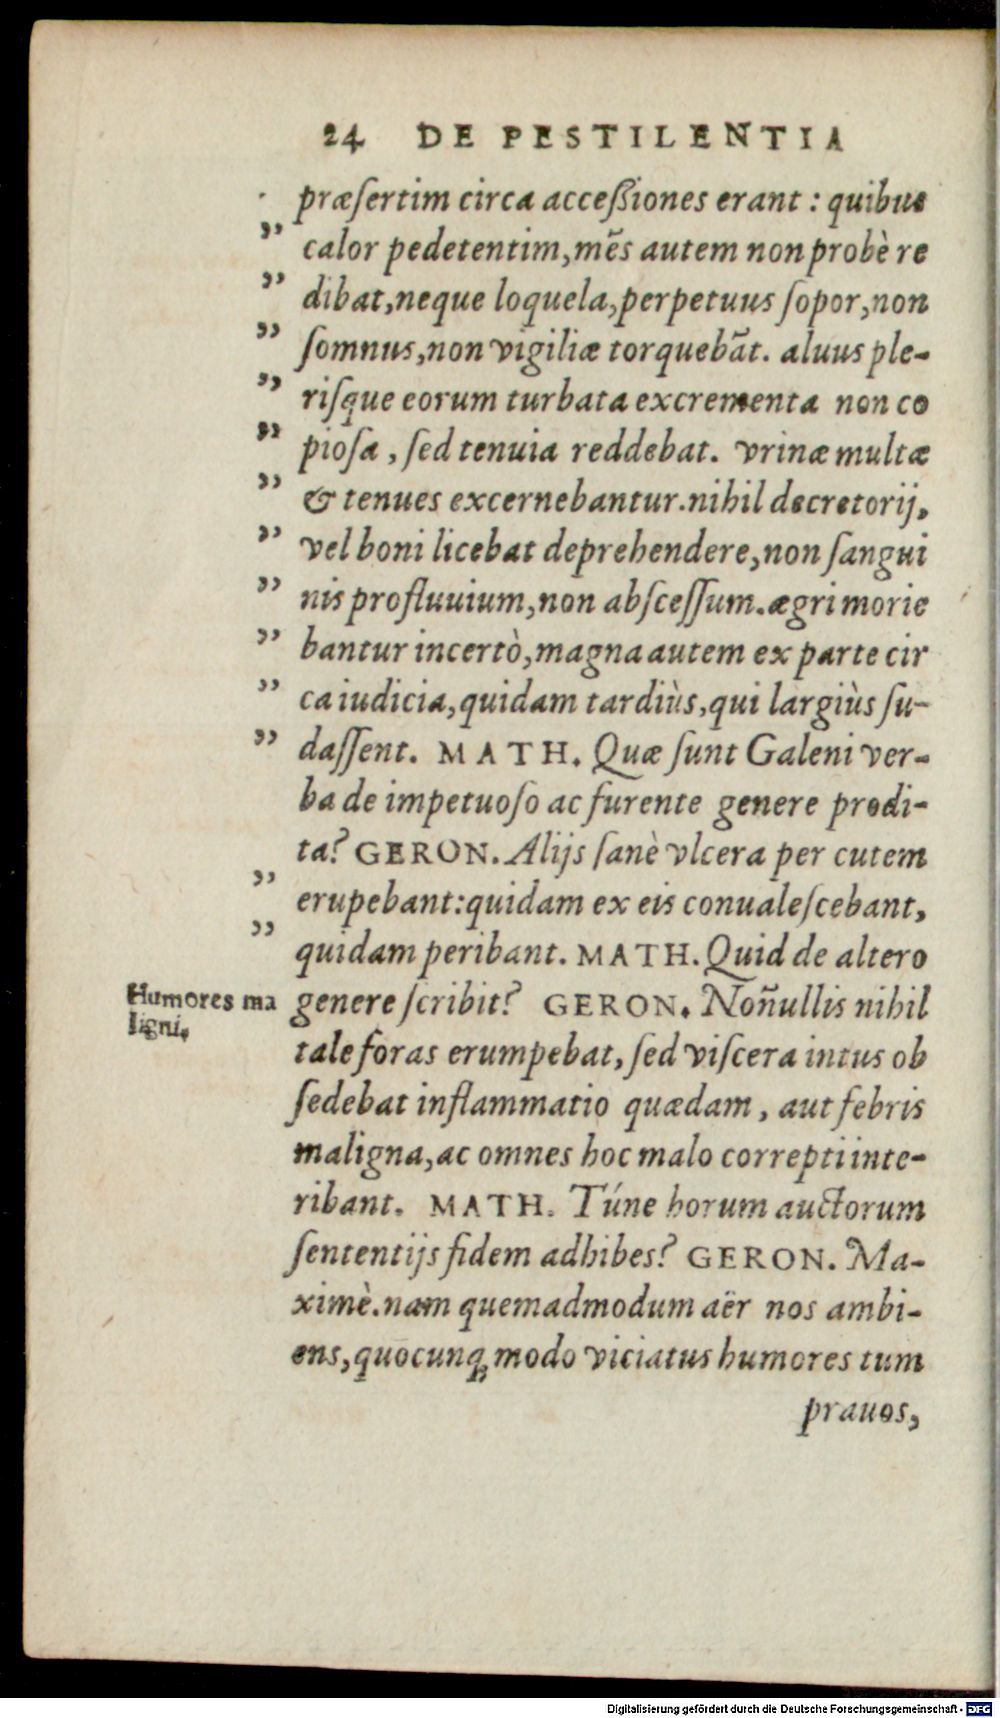 24 DE PESTILENTIA
præſertim circa acceßiones erant : quibus
„ calor pedetentim, mẽs autem non probè re
„ dibat, neque loquela, perpetuus ſopor, non
„ ſomnus, non vigiliæ torquebãt. aluus ple-
„ riſque eorum turbata excrementa non co
„ pioſa, ſed tenuia reddebat. vrinæ multæ
„ & tenues excernebantur. nihil decretorij,
„ vel boni licebat deprehendere, non ſangui
„ nis profluuium, non abſceſſum. ægri morie
„ bantur incertò, magna autem ex parte cir
„ ca iudicia, quidam tardiùs, qui largiùs ſu-
„ daſſent. MATH. Quæ ſunt Galeni ver-
ba de impetuoſo ac furente genere prodi-
ta? GERON. Alijs ſanè vlcera per cutem
„ erupebant: quidam ex eis conualeſcebant,
„ quidam peribant. MATH. Quid de altero
Humores ma
ligni.
genere ſcribit? GERON. Noñullis nihil
tale foras erumpebat, ſed viſcera intus ob
ſedebat inflammatio quædam, aut febris
maligna, ac omnes hoc malo correpti inte-
ribant. MATH. Túne horum auctorum
ſententijs fidem adhibes? GERON. Ma-
ximè. nam quemadmodum aër nos ambi-
ens, quocunq; modo viciatus humores tum
prauos,
Digitalisierung gefördert durch die Deutsche Forschungsgemeinschaft - DFG